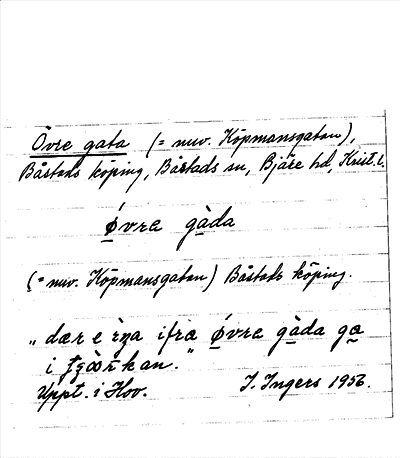 Övre gata (= nuv. Köpmansgatan),
Båstads köping, Båstads sn, Bjäre hd, Krist. l.
øvra gàda
(= nuv. Köpmansgatan) Båstads köping.
"dær e ifra øvra gàda
i
Uppt. i Hov. I. Ingers 1956.